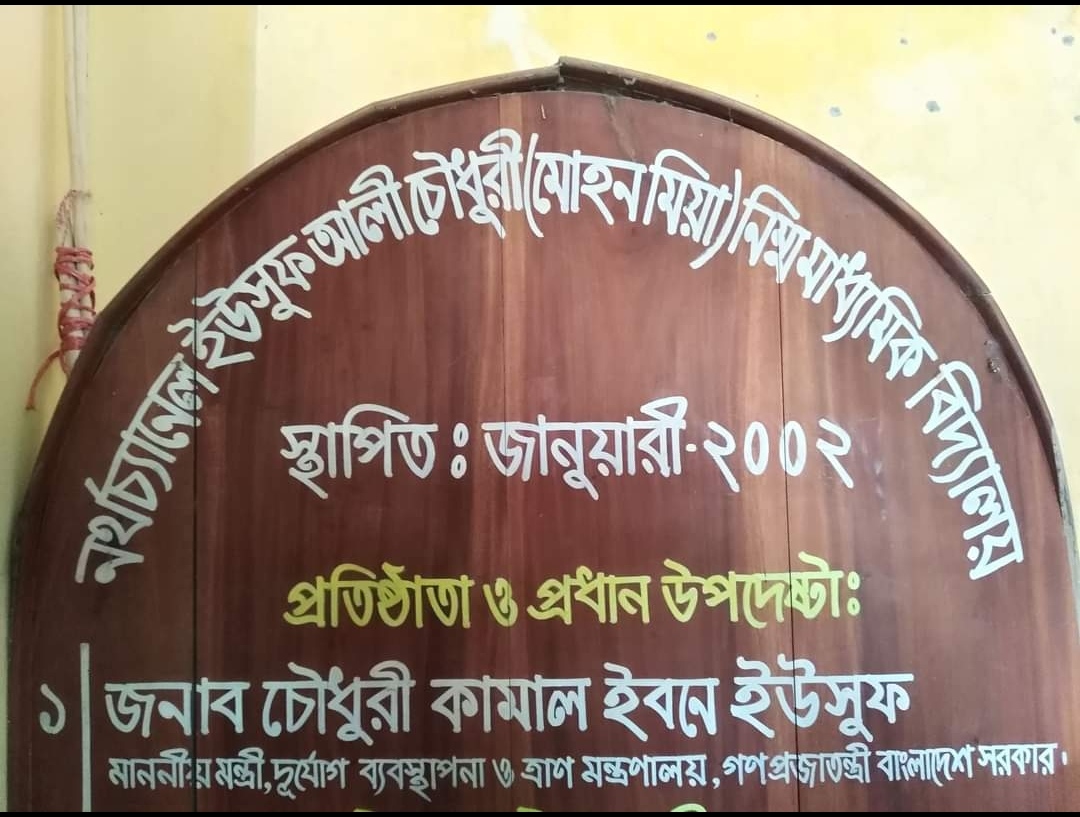 নর্থচ্যানেল ইউসুফ আলী চৌধুরী (মোহন মিয়া) নিম্ন মাধ্যমিক বিদ্যালয়
স্থাপিত : জানুয়ারী-২০০২
প্রতিষ্ঠাতা ও প্রধান উপদেষ্টা:
১ জনাব চৌধুরী কামাল ইবনে ইউসুফ
মাননীয় মন্ত্রী, দুর্যোগ ব্যবস্থাপনা ও ত্রাণ মন্ত্রণালয়, গণপ্রজাতন্ত্রী বাংলাদেশ সরকার।